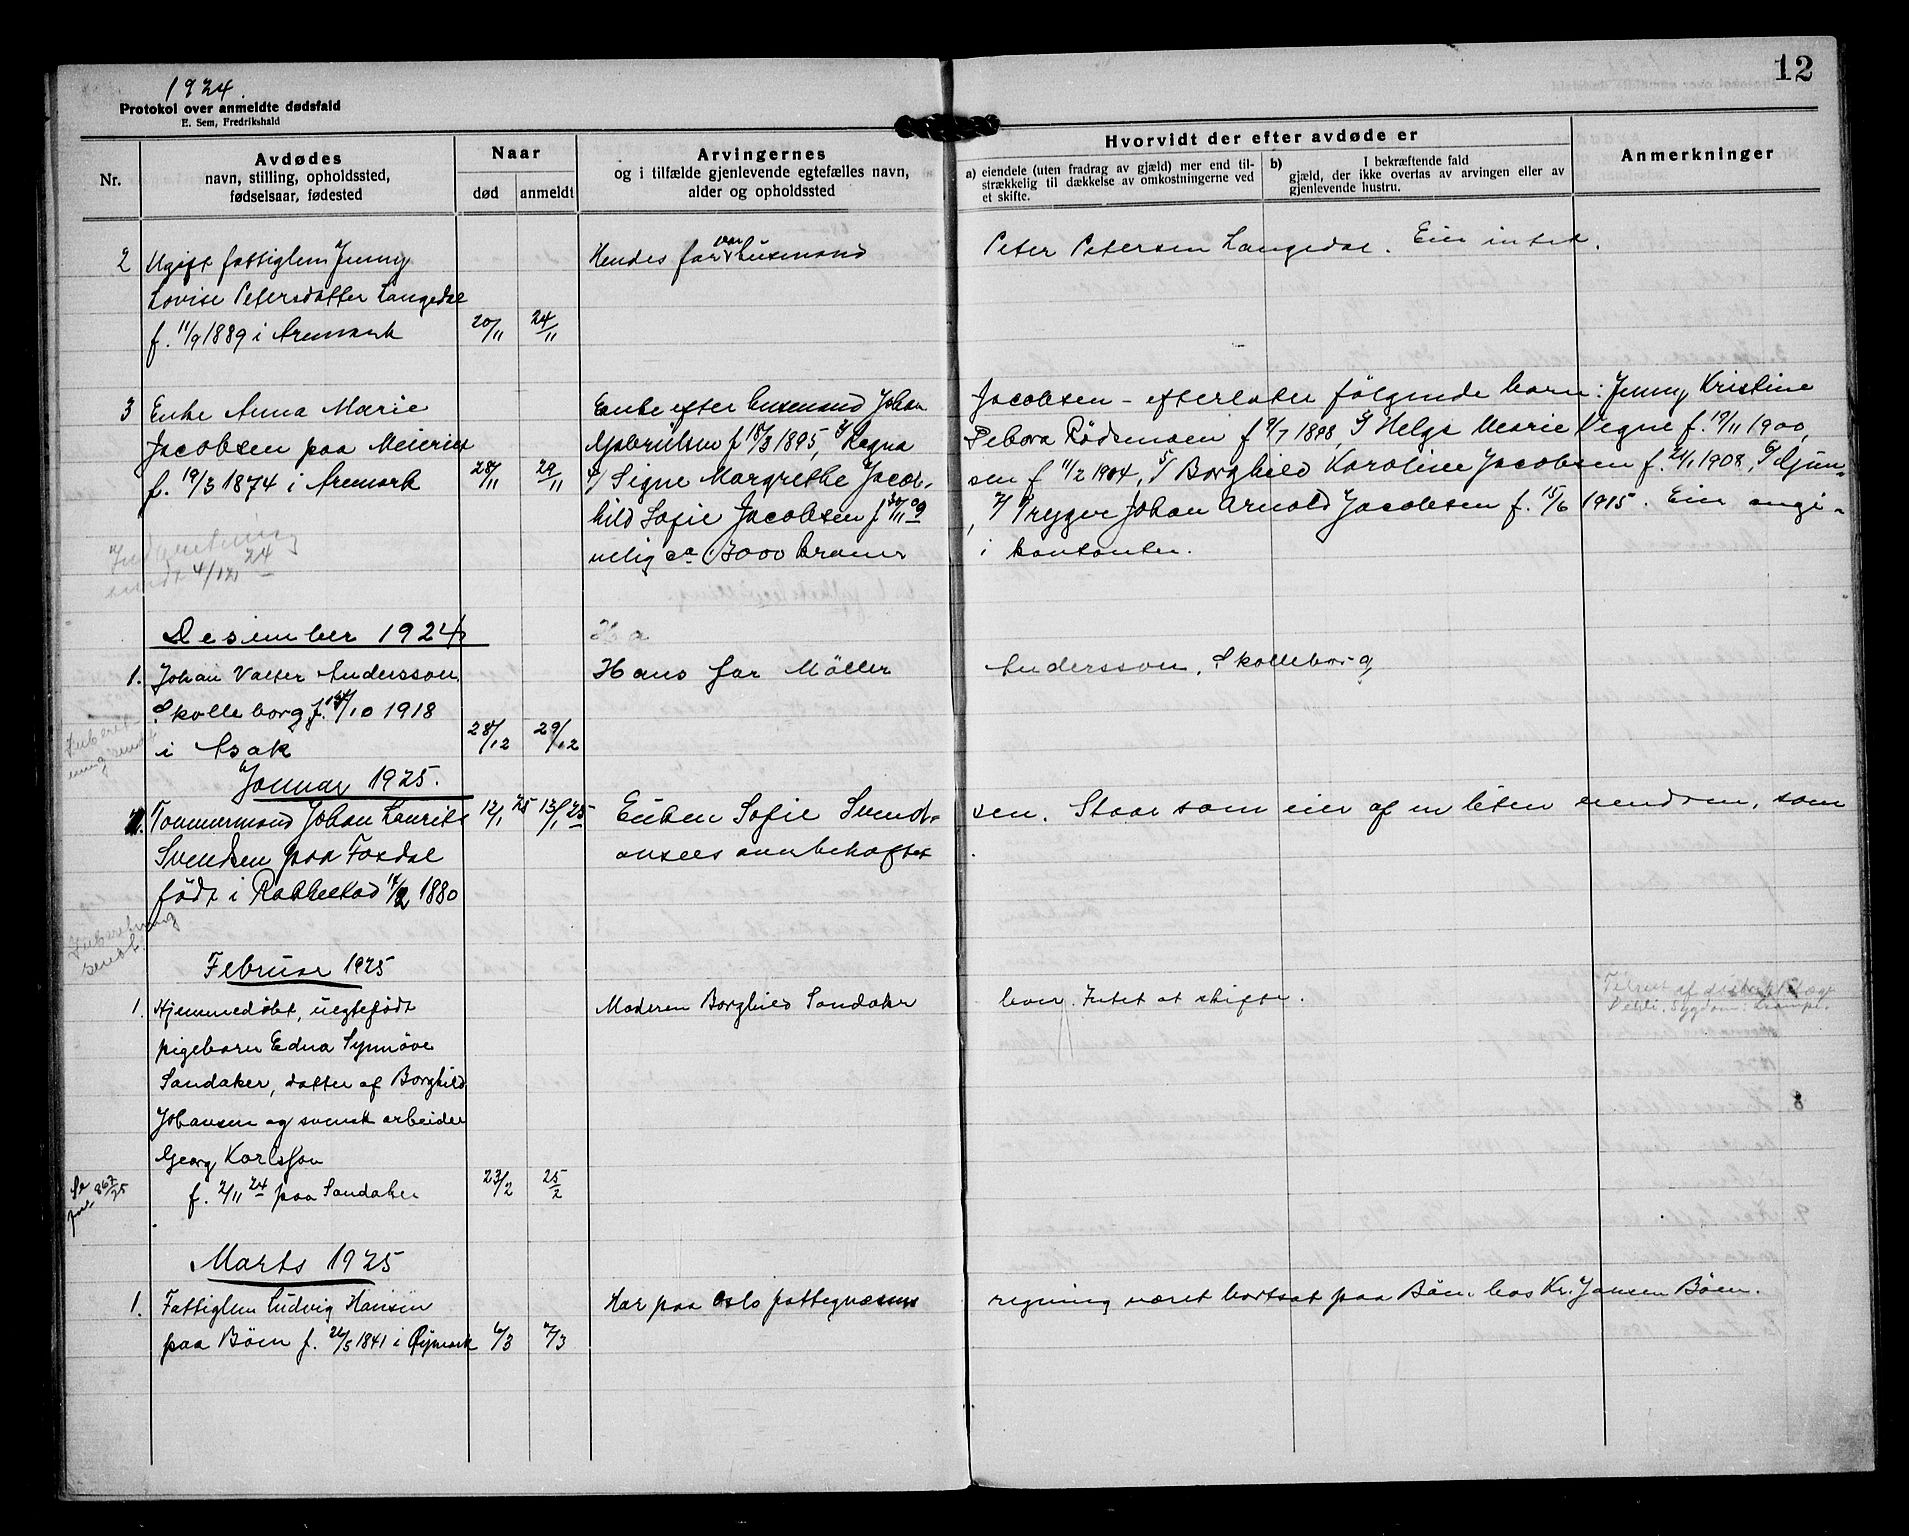 12
1924.
Protokol over anmeldte dødsfald
E. Sem, Fredrikshald
Nr.
Avdødes
navn, stilling, opholdssted,
fødselsaar, fødested
Naar
død
anmeldt
Arvingernes
og i tilfælde gjenlevende egtefælles navn,
alder og opholdssted
Hvorvidt der efter avdøde er
a) eiendele (uten fradrag av gjæld) mer end til-
strækkelig til dækkelse av omkostningerne ved
et skifte.
b) I bekræftende fald
gjæld, der ikke overtas av arvingen eller av
gjenlevende hustru.
Anmerkninger
2 Ugift fattiglem Jenny
Lovise Petersdatter Langedal
f. 11/9 1889 i Aremark
20/11
24/11
Hendes far var husmand
Peter Petersen Langedal. Eier intet.
3 Enke Anna Marie
Jacobsen paa Meieriet
f. 19/3 1874 i Aremark
28/11
29/11
Enke efter husmand Johan
Jacobsen - efterlater følgende barn: Jenny Kristine
f 18/3 1895, Ragna
Debora Rødsmoen f 9/7 1898, Helga Marie Vegne f. 19/11 1900,
4/ Signe Margrethe Jacob-
sen f 11/2 1904, 5/ Borghild Karoline Jacobsen f. 24/1 1908, 6/ Gjun-
hild Sofie Jacobsen f 30/11 09
, 7/ Trygve Johan Arnold Jacobsen f. 15/6 1915. Eier angi-
velig ca 3000 kroner
i kontanter.
Indberetning
sendt 4/12 24
Desember 1924
Ha
1. Johan Valter Andersson
Skolleborg f. 14/10 1918
i Asak
28/12
29/12
Hans far Møller
Andersson, Skolleborg
Indberet
ning sendt
Januar 1925.
1. Tømmermand Johan Laurits
Svendsen paa Foxdal
født i Rakkestad 14/2 1880
12/1 25
13/1 25
Enken Sofie Svend-
sen. Staar som eier af en liten eiendom, som
ansees overbehæftet
.
Indberetning
sendt.
Februar 1925
1. Hjemmedøbt, uegtefødt
pigebarn Edna Synnøve
Sandaker, datter af Borghild
Johansen og svensk arbeider
Georg Karlsson
f. 2/11 24 paa Sandaker
23/2
25/2
Moderen Borghild Sandaker
lever. Intet at skifte.
Tilsyn af distriktslæge
Dehli. Sygdom: Krampe.
Se
jnl. 867/25
Marts 1925
1. Fattiglem Ludvig Hansen
paa Bøen f. 26/5 1841 i Øymark
6/3
7/3
Har paa Oslo fattigvæsens
regning været bortsat paa Bøen hos Kr. Jansen Bøen.